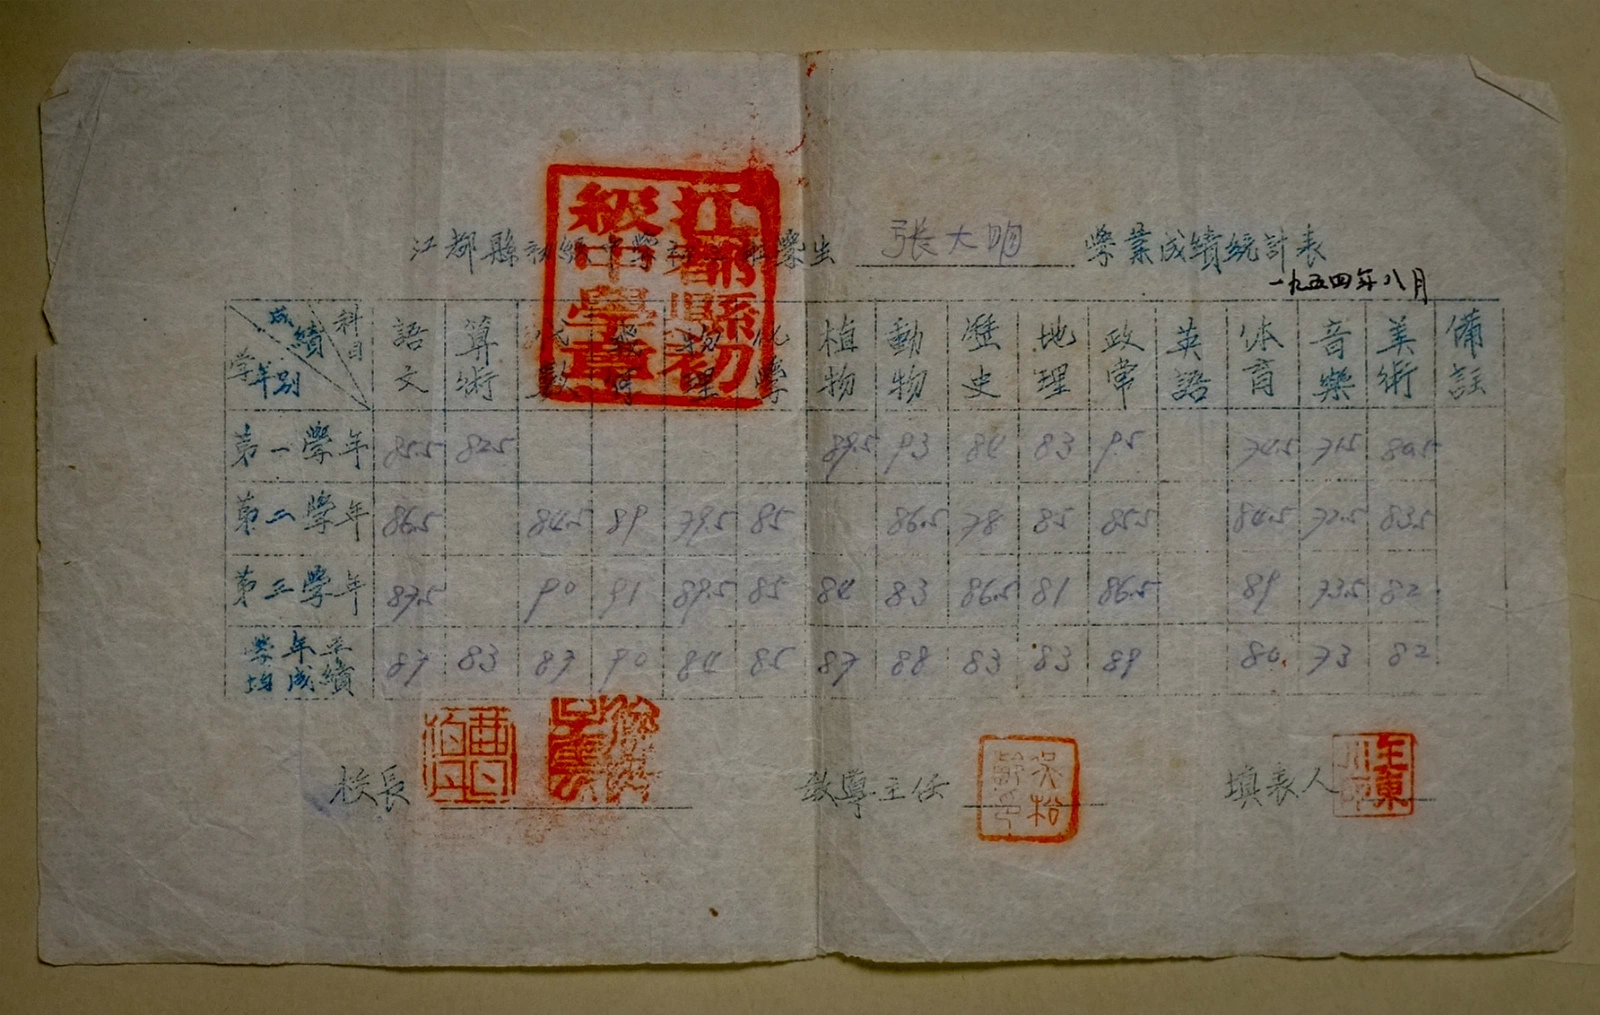 江都縣初級中學初三上學生 张大明 學業成績統計表
一九五四年八月
成績 科目 學年別 語文 算術 代數 幾何 物理 化學 植物 動物 歷史 地理 政常 英語 体育 音樂 美術 備註
第一學年 85.5 82.5 89.5 93 84 83 95 74.5 71.5 80.5
第二學年 86.5 84.5 89 79.5 85 86.5 78 85 85.5 84.5 72.5 83.5
第三學年 87.5 90 91 89.5 85 84 83 86.5 81 86.5 89 73.5 82
學年平均成績 87 83 87 90 84 85 87 88 83 83 89 80 73 82
校長 教導主任 填表人
江都縣初級中學章
吳松
王東川印